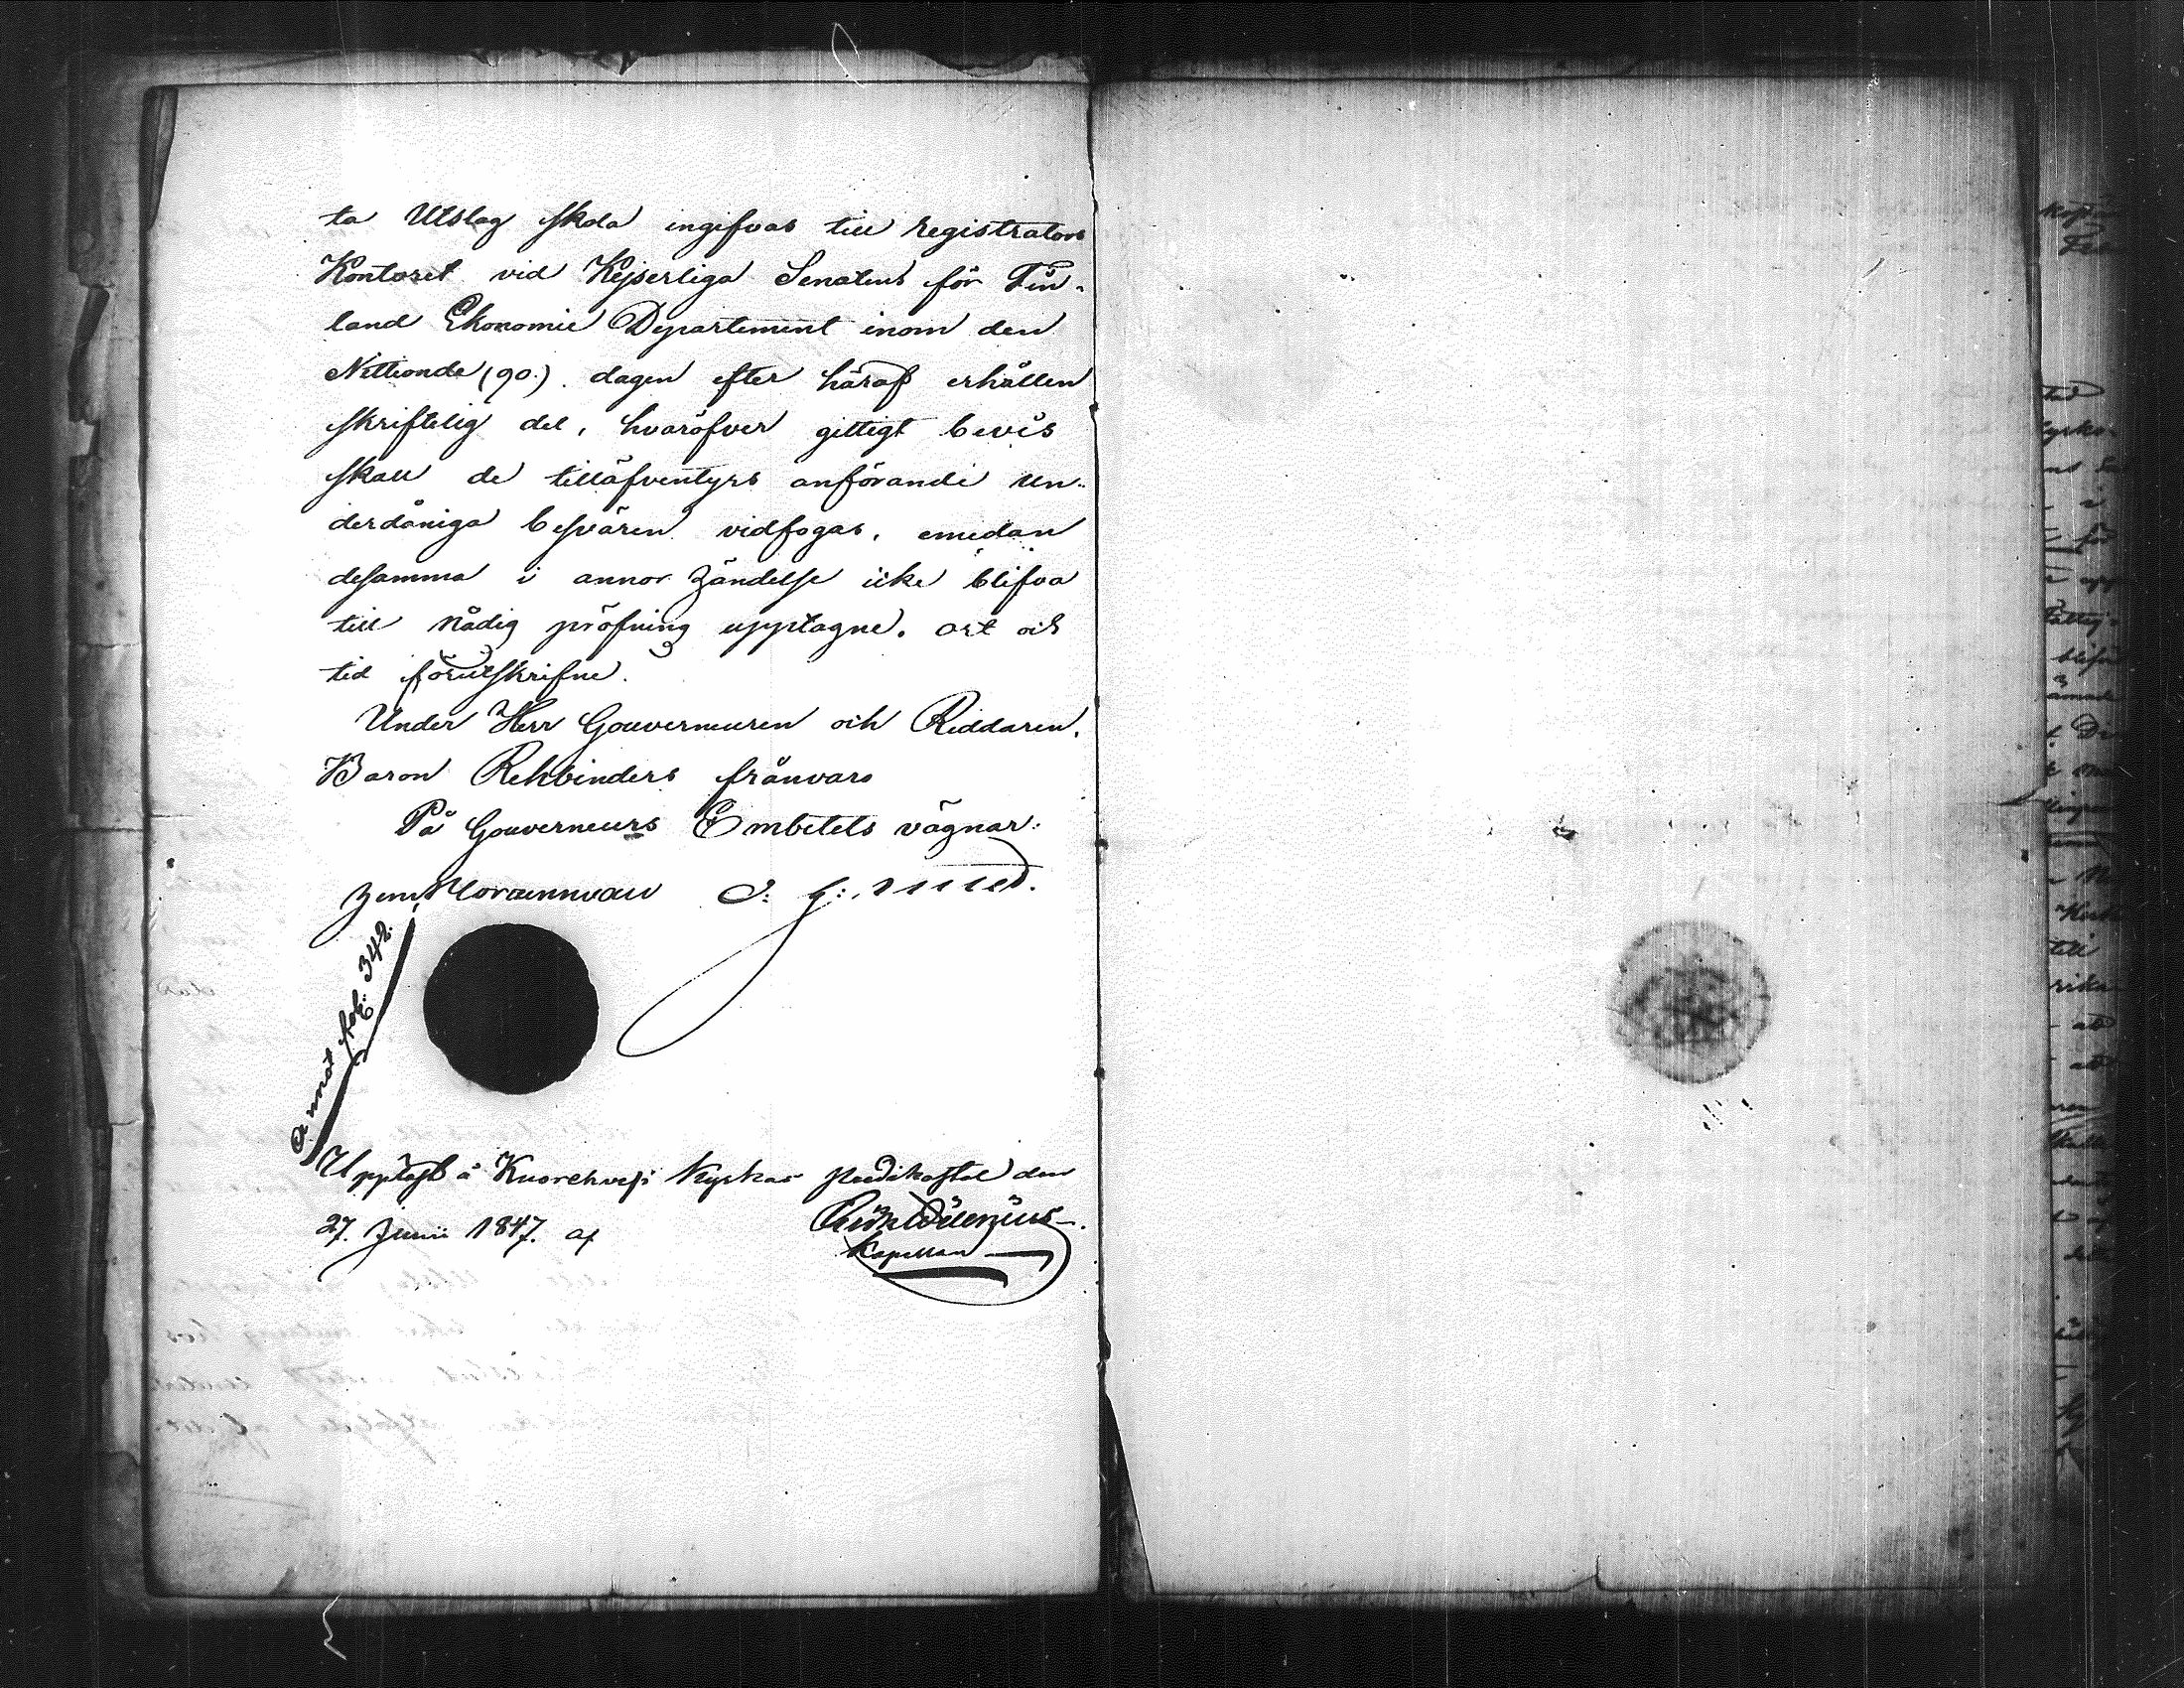 ta Utslag skola ingifvas till registrators
Kontoret vid Kejserliga Senatens för Fin-
land Ekonomie Departement inom den
Nittionde (90.) dagen efter häraf erhållen
skriftelig del, hvaröfver giltigt bevis
skall de tilläfventyrs anförande un-
derdåniga besvären vidfogas, emedan
desamma i annor händelse icke blifva
till nådig pröfning upptagne. Ort och
tid förutskrifne.
Under Herr Gouverneuren och Riddaren,
Baron Rehbinders frånvaro
På Gouverneurs Embetets vägnar:
Annot. fol. 342.
Uppläst å Kuorehvesi Kyrkas predikostol den
27. Junii 1847. af
Kapellan